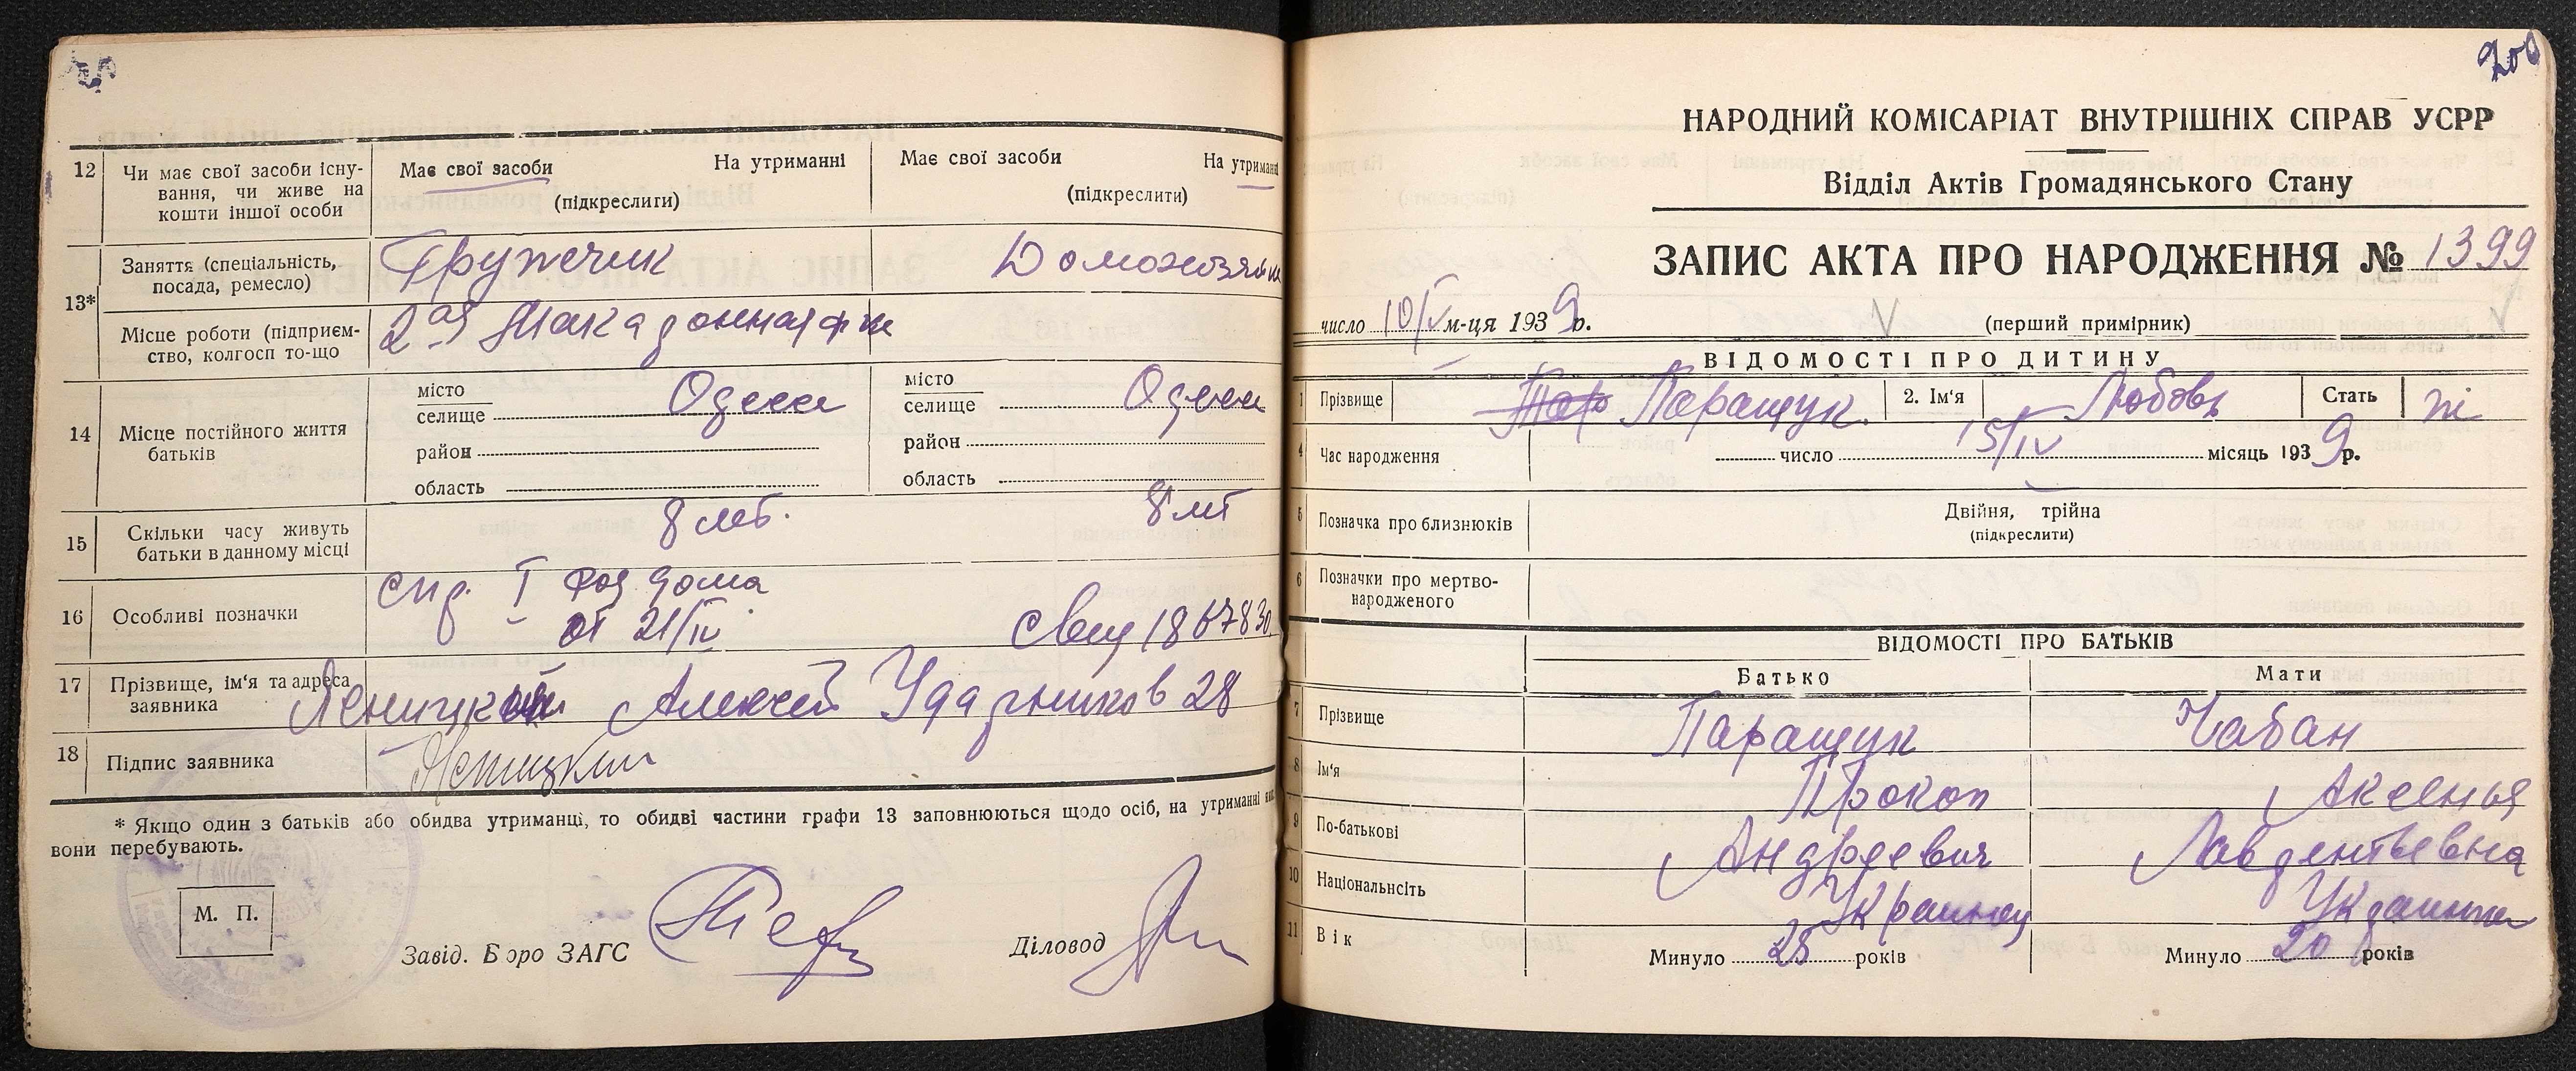 12 Чи має свої засоби існування, чи живе на кошти іншої особи
Має свої засоби На утриманні
(підкреслити)
Має свої засоби На утриманні
(підкреслити)
13*
Заняття (спеціальність, посада, ремесло)
Домохозяйк
Місце роботи (підприємство, колгосп то-що
2ая Макаронная ф-ка
14 Місце постійного життя батьків
місто
селище Одесса
район
область
місто
селище Одесса
район
область
15 Скільки часу живуть батьки в данному місці
8 лет.
8 лет
16 Особливі позначки
спр. I род дома
от 21/IV
17 Прізвище, ім'я та адреса заявника
Леницкий Алексей Ударников 28
18 Підпис заявника
Леницкий
* Якщо один з батьків або обидва утриманці, то обидві частини графи 13 заповнюються щодо осіб, на утриманні яких
вони перебувають.
М. П.
Завід. Бюро ЗАГС
Діловод
200
НАРОДНИЙ КОМІСАРІАТ ВНУТРІШНІХ СПРАВ УСРР
Відділ Актів Громадянського Стану
ЗАПИС АКТА ПРО НАРОДЖЕННЯ № 1399
число 10/V м-ця 1939 р.
(перший примірник)
ВІДОМОСТІ ПРО ДИТИНУ
1 Прізвище Паращук. 2. Ім'я Любовь Стать ж
4 Час народження число 15/IV місяць 1939 р.
5 Позначка про близнюків Двійня, трійна
(підкреслити)
6 Позначки про мертвонародженого
ВІДОМОСТІ ПРО БАТЬКІВ
Батько Мати
7 Прізвище Паращук Чабан
8 Ім'я Прокоп Аксенья
9 По-батькові Андреевич Лаврентьевна
10 Національнсіть Украинец Украинка
11 Вік Минуло 25 років Минуло 20 років